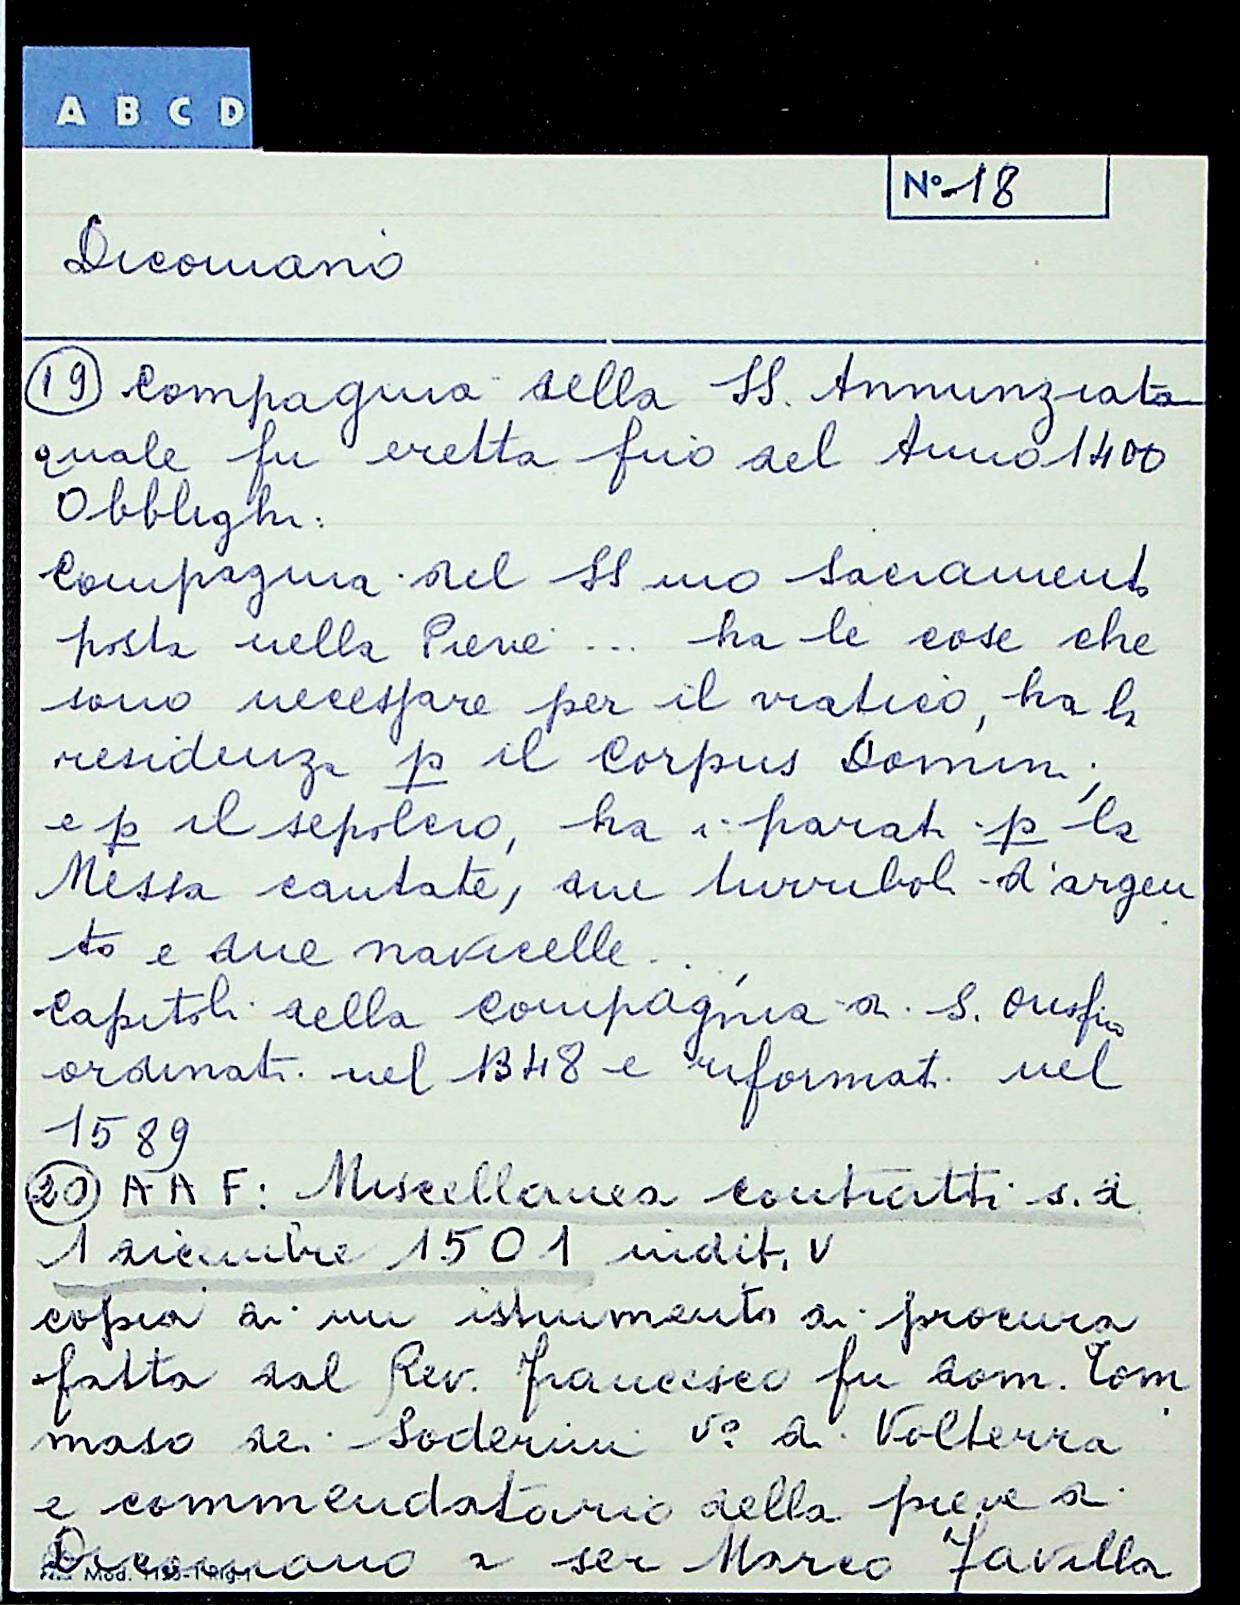 A B C D
N° 18
Dicomano
19 Compagnia della SS. Annunziata
quale fu eretta fino del Anno 1400
Obblighi:
Compagnia del SS mo Sacramento
posta nella Pieve ... ha le cose che
sono necessare per il viatico, ha la
residenza p il Corpus Domini,
e p il sepolcro, ha i parati p la
Messa cantate, due turriboli d'argen
to e due navicelle...
Capitoli della Compagnia di S. Onofrio
ordinati nel 1348 e riformati nel
1589
20 A A F: Miscellanea contratti s. d
1 dicembre 1501 indit. V
copia di un istrumento di procura
fatta dal Rev. Francesco fu dom. Tom
maso dei Soderini V° di Volterra
e commendatario della pieve di
Dicomano a ser Marco Favilla